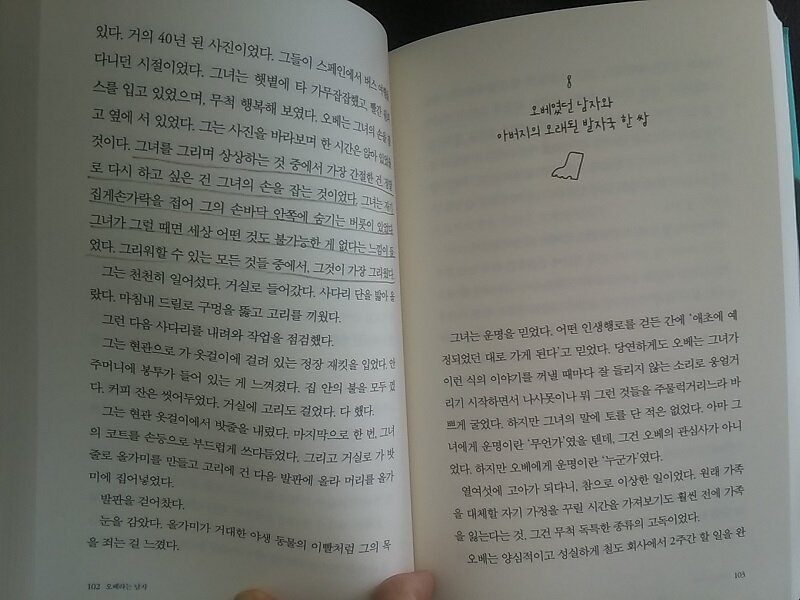 있다. 거의 40년 된 사진이었다. 그들이 스페인에서 버스
다니던 시절이었다. 그녀는 햇볕에 타 가무잡잡했고, 빨간
스를 입고 있었으며, 무척 행복해 보였다. 오베는 그녀의 손을
고 옆에 서 있었다. 그는 사진을 바라보며 한 시간은 앉아
것이다. 그녀를 그리며 상상하는 것 중에서 가장 간절한 건,
로 다시 하고 싶은 건 그녀의 손을 잡는 것이었다. 그녀는
집게손가락을 접어 그의 손바닥 안쪽에 숨기는 버릇이
그녀가 그럴 때면 세상 어떤 것도 불가능한 게 없다는 느낌이
었다. 그리워할 수 있는 모든 것들 중에서, 그것이 가장 그리웠다.
그는 천천히 일어섰다. 거실로 들어갔다. 사다리 단을 밟아 올
랐다. 마침내 드릴로 구멍을 뚫고 고리를 끼웠다.
그런 다음 사다리를 내려와 작업을 점검했다.
그는 현관으로 가 옷걸이에 걸려 있는 정장 재킷을 입었다. 안
주머니에 봉투가 들어 있는 게 느껴졌다. 집 안의 불을 모두 껐
다. 커피 잔은 씻어두었다. 거실에 고리도 걸었다. 다 했다.
그는 현관 옷걸이에서 밧줄을 내렸다. 마지막으로 한 번, 그녀
의 코트를 손등으로 부드럽게 쓰다듬었다. 그리고 거실로 가 밧
줄로 올가미를 만들고 고리에 건 다음 발판에 올라 머리를 올가
미에 집어넣었다.
발판을 걷어찼다.
눈을 감았다. 올가미가 거대한 야생 동물의 이빨처럼 그의 목
을 죄는 걸 느꼈다.
102 오베라는 남자
8
오베였던 남자와
아버지의 오래된 발자국 한 쌍
그녀는 운명을 믿었다. 어떤 인생행로를 걷든 간에 '애초에 예
정되었던 대로 가게 된다'고 믿었다. 당연하게도 오베는 그녀가
이런 식의 이야기를 꺼낼 때마다 잘 들리지 않는 소리로 웅얼거
리기 시작하면서 나사못이나 뭐 그런 것들을 주물럭거리느라 바
쁘게 굴었다. 하지만 그녀의 말에 토를 단 적은 없었다. 아마 그
녀에게 운명이란 '무언가'였을 텐데, 그건 오베의 관심사가 아니
었다. 하지만 오베에게 운명이란 '누군가'였다.
열여섯에 고아가 되다니, 참으로 이상한 일이었다. 원래 가족
을 대체할 자기 가정을 꾸릴 시간을 가져보기도 훨씬 전에 가족
을 잃는다는 것, 그건 무척 독특한 종류의 고독이었다.
오베는 양심적이고 성실하게 철도 회사에서 2주간 할 일을 완
103